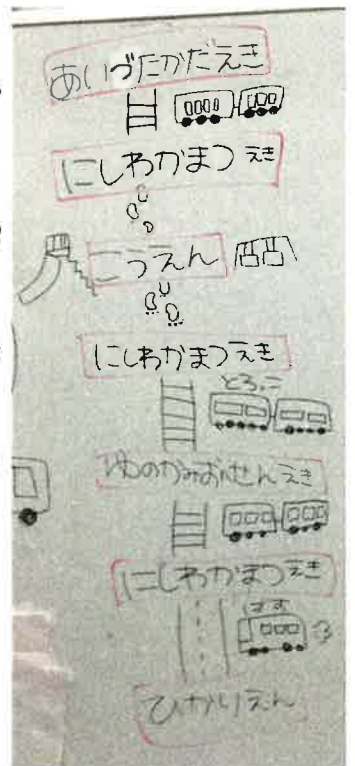 あいづたかだえき
にしわかまつえき
こうえん
にしわかまつえき
とろっこ
ゆのかみおんせんえき
にしわかまつえき
ばす
ひかりえん